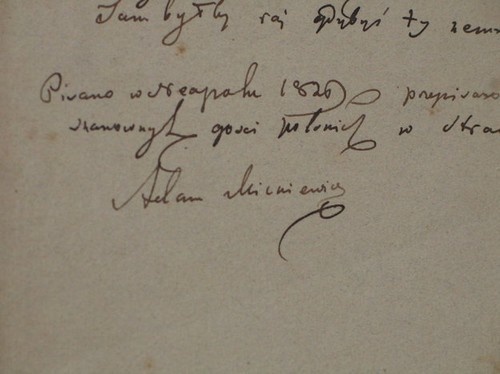 Tam byłby raj gdybyś ty zemn
Pisano w Neapolu przepisano
szanownych gości w
Adam Mickiewicz